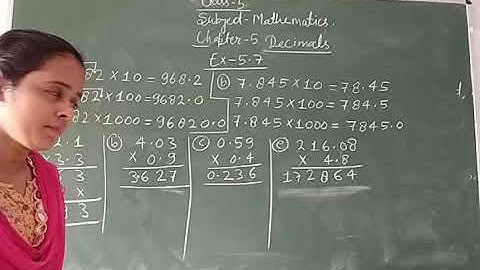 Class-5
Subject-Mathematics.
Chapter-5 Decimals.
Ex-5.7
82 × 10 = 968.2
(b) 7.845 × 10 = 78.45
82 × 100 = 9682.0
7.845 × 100 = 784.5
82 × 1000 = 96820.0
7.845 × 1000 = 7845.0
2.1
(b) 4.03
(c) 0.59
(e) 216.08
3.3
× 0.9
× 0.4
× 4.8
3
3.627
0.236
172864
3 ×
3 3